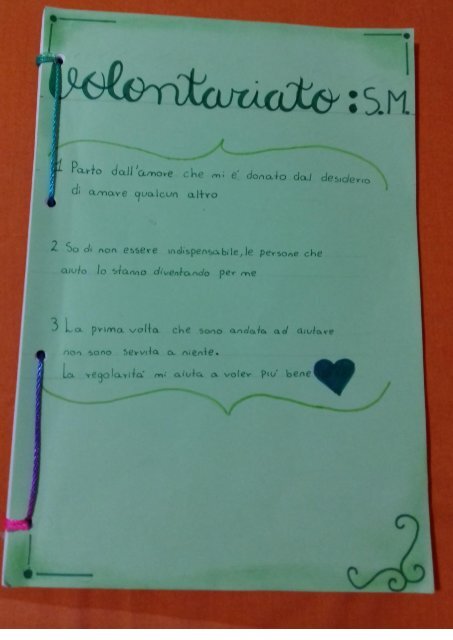 volontariato: S.M.
1 Parto dall'amore che mi é donato dal desiderio
di amare qualcun altro
2 So di non essere indispensabile, le persone che
aiuto lo stanno diventando per me
3 La prima volta che sono andata ad aiutare
non sono servita a niente.
La regolarità mi aiuta a voler più bene